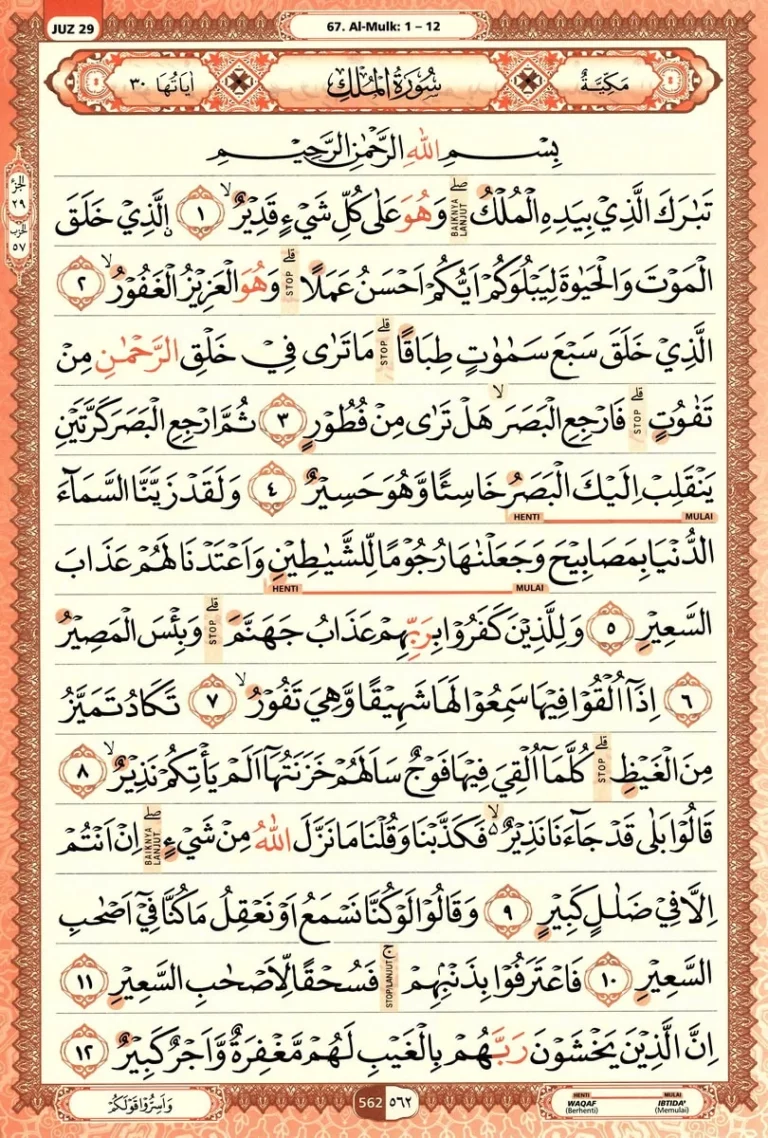 JUZ 29
67. Al-Mulk: 1 – 12
مَكِّيَّةٌ سُورَةُ الْمُلْكِ اٰيَاتُهَا ٣٠
بِسْمِ اللّٰهِ الرَّحْمٰنِ الرَّحِيْمِ
الجزء ٢٩
الحزب ٥٧
تَبٰرَكَ الَّذِيْ بِيَدِهِ الْمُلْكُ ۖ BAIKNYA LANJUT وَهُوَ عَلٰى كُلِّ شَيْءٍ قَدِيْرٌ ۙ ١ ۨالَّذِيْ خَلَقَ
الْمَوْتَ وَالْحَيٰوةَ لِيَبْلُوَكُمْ اَيُّكُمْ اَحْسَنُ عَمَلًا ۗ STOP وَهُوَ الْعَزِيْزُ الْغَفُوْرُ ۙ ٢
الَّذِيْ خَلَقَ سَبْعَ سَمٰوٰتٍ طِبَاقًا ۗ STOP مَا تَرٰى فِيْ خَلْقِ الرَّحْمٰنِ مِنْ
تَفٰوُتٍ ۗ STOP فَارْجِعِ الْبَصَرَ ۙ هَلْ تَرٰى مِنْ فُطُوْرٍ ٣ ثُمَّ ارْجِعِ الْبَصَرَ كَرَّتَيْنِ
يَنْقَلِبْ اِلَيْكَ الْبَصَرُ خَاسِئًا وَّهُوَ حَسِيْرٌ ٤ وَلَقَدْ زَيَّنَّا السَّمَاۤءَ
HENTI MULAI
الدُّنْيَا بِمَصَابِيْحَ وَجَعَلْنٰهَا رُجُوْمًا لِّلشَّيٰطِيْنِ وَاَعْتَدْنَا لَهُمْ عَذَابَ
HENTI MULAI
السَّعِيْرِ ٥ وَلِلَّذِيْنَ كَفَرُوْا بِرَبِّهِمْ عَذَابُ جَهَنَّمَ ۗ STOP وَبِئْسَ الْمَصِيْرُ
٦ اِذَآ اُلْقُوْا فِيْهَا سَمِعُوْا لَهَا شَهِيْقًا وَّهِيَ تَفُوْرُ ۙ ٧ تَكَادُ تَمَيَّزُ
مِنَ الْغَيْظِ ۗ STOP كُلَّمَآ اُلْقِيَ فِيْهَا فَوْجٌ سَاَلَهُمْ خَزَنَتُهَآ اَلَمْ يَأْتِكُمْ نَذِيْرٌ ۙ ٨
قَالُوْا بَلٰى قَدْ جَاۤءَنَا نَذِيْرٌ ۙ ە فَكَذَّبْنَا وَقُلْنَا مَا نَزَّلَ اللّٰهُ مِنْ شَيْءٍ ۖ BAIKNYA LANJUT اِنْ اَنْتُمْ
اِلَّا فِيْ ضَلٰلٍ كَبِيْرٍ ٩ وَقَالُوْا لَوْ كُنَّا نَسْمَعُ اَوْ نَعْقِلُ مَا كُنَّا فِيْٓ اَصْحٰبِ
السَّعِيْرِ ١٠ فَاعْتَرَفُوْا بِذَنْۢبِهِمْ ۚ STOP/LANJUT فَسُحْقًا لِّاَصْحٰبِ السَّعِيْرِ ١١
اِنَّ الَّذِيْنَ يَخْشَوْنَ رَبَّهُمْ بِالْغَيْبِ لَهُمْ مَّغْفِرَةٌ وَّاَجْرٌ كَبِيْرٌ ١٢
وَاَسِرُّوْا قَوْلَكُمْ
562 ٥٦٢
HENTI MULAI
WAQAF IBTIDA'
(Berhenti) (Memulai)